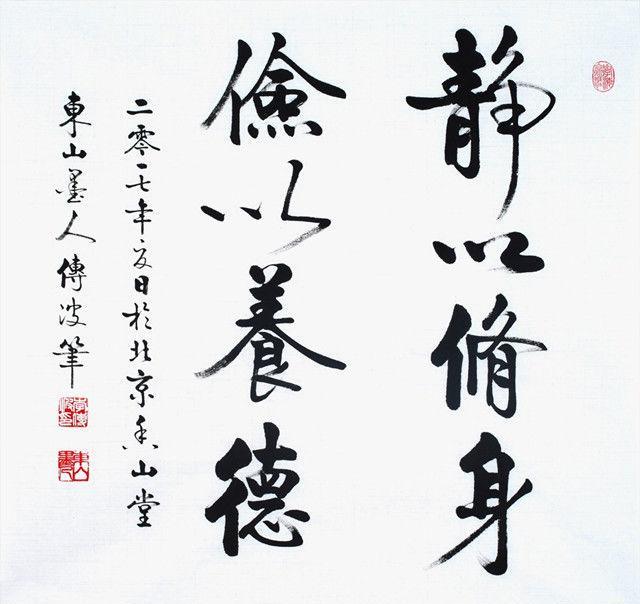 靜以脩身
儉以養德
二零一七年夏日於北京香山堂
東山墨人傳波筆